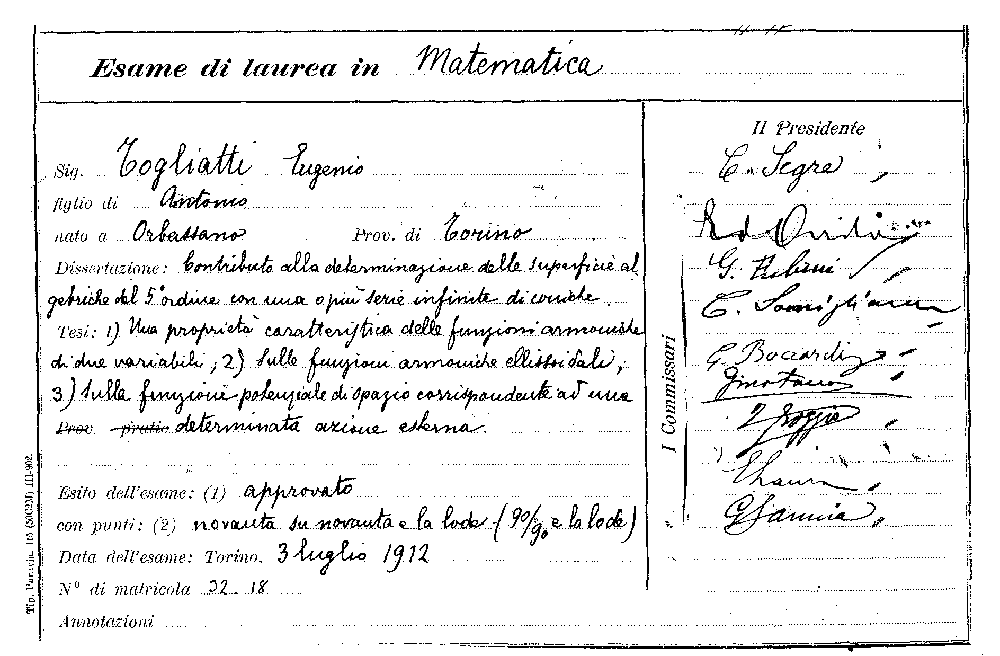 Esame di laurea in Matematica
Sig. Togliatti Eugenio
figlio di Antonio
nato a Orbassano Prov. di Torino
Dissertazione: Contributo alla determinazione delle superficie al
gebriche del 5° ordine con una o più serie infinite di coniche
Tesi: 1) Una proprietà caratteristica delle funzioni armoniche
di due variabili; 2) Sulle funzioni armoniche ellissoidali;
3) Sulla funzione potenziale di spazio corrispondente ad una
Prov. pratic determinata azione esterna.
Esito dell'esame: (1) approvato
con punti: (2) novanta su novanta e la lode (90/90 e la lode)
Data dell'esame: Torino, 3 luglio 1912
N° di matricola 32-18
Annotazioni
Il Presidente
C. Segre
I Commissari
C. Somigliana
G. Boccardi
Gino Fano
Tip. Paravia